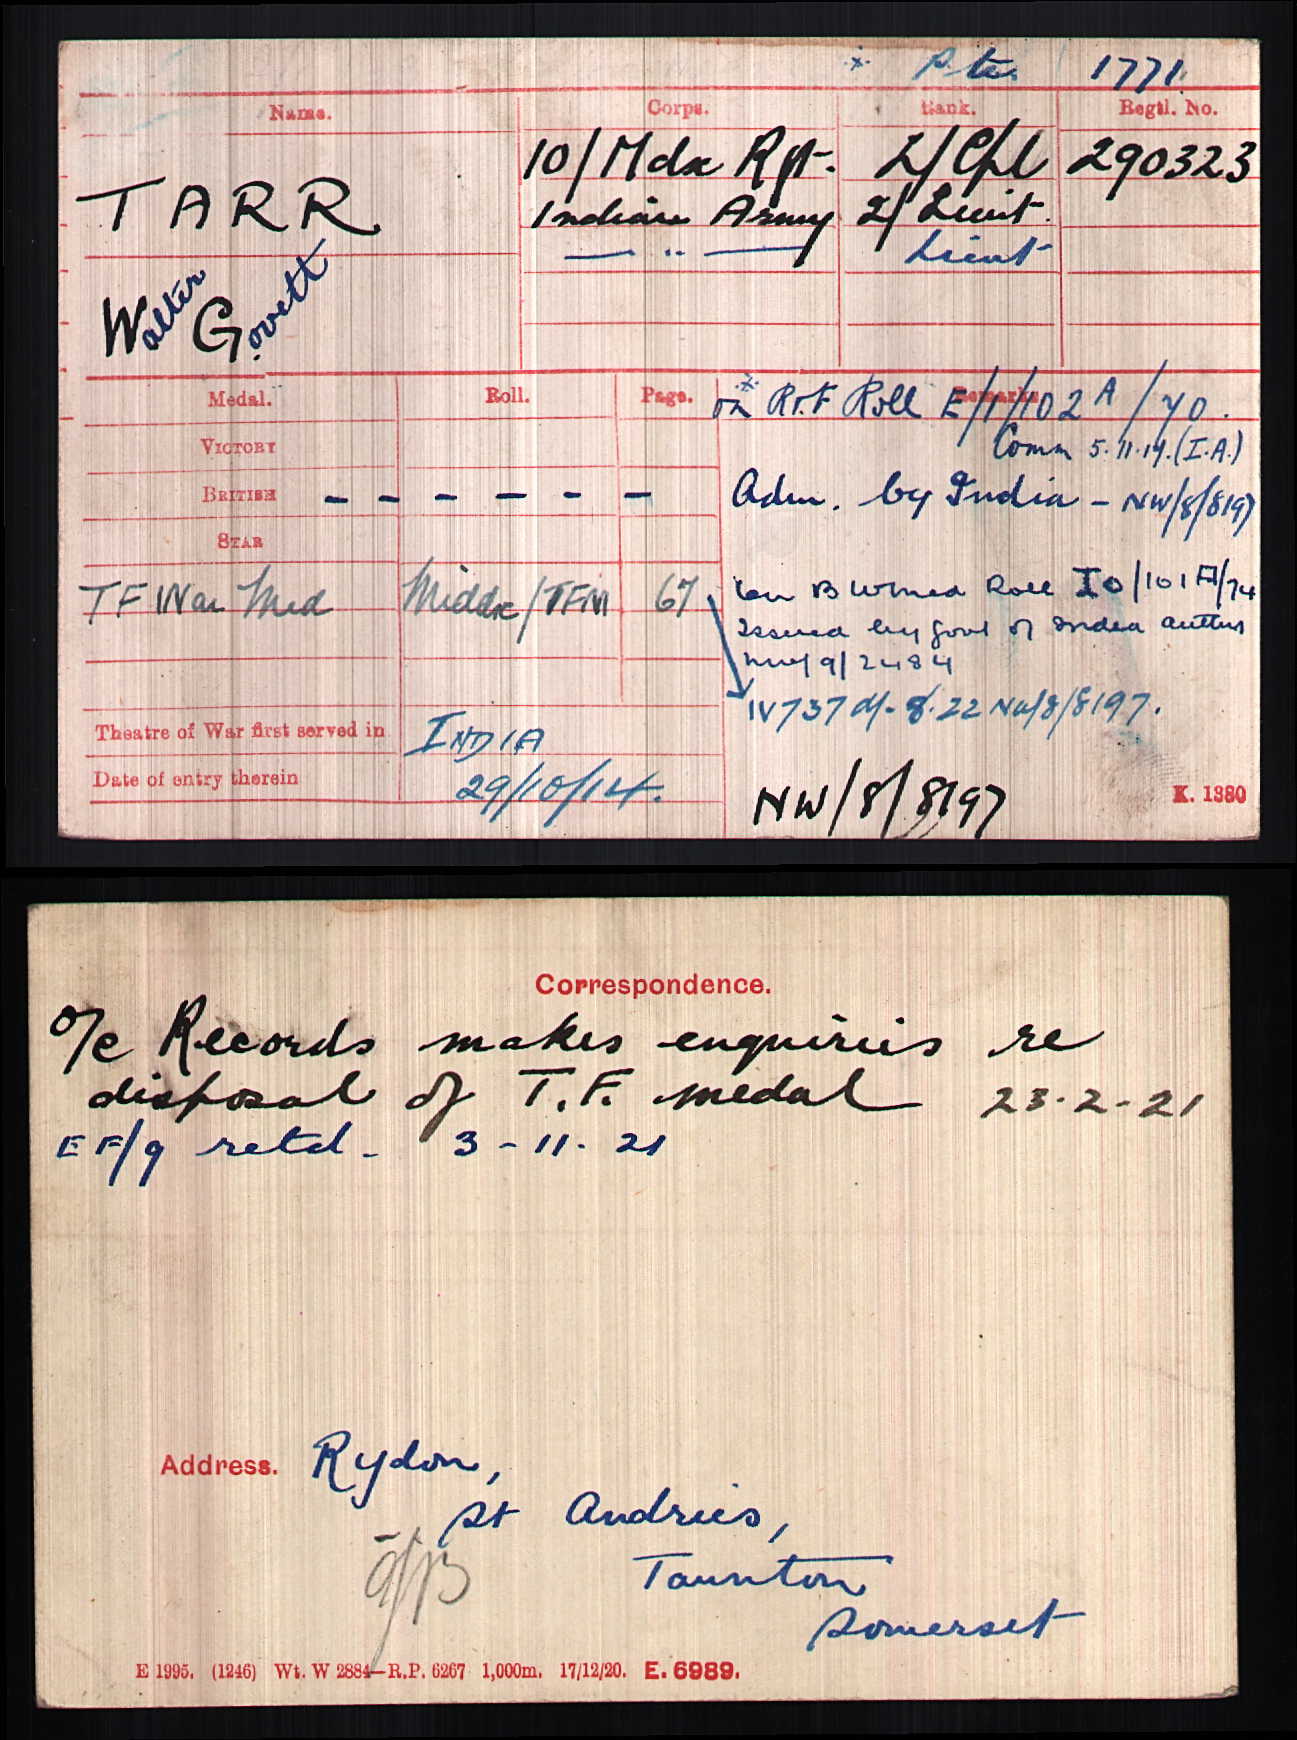 * Pte. 1771.
Name. Corps. Rank. Regtl. No.
10/Mdx Rgt. L/Cpl 290323
TARR Indian Army 2/Lieut.
— " — Lieut
Walter Govett
Medal. Roll. Page. Remarks.
* on R.F Roll E/1/102 A/70.
Victory
Comm 5.11.17.(I.A.)
British - - - - - - Adm. by India - NW/8/8197
Star
TF War Med Middx/TFM 67 on B W Med Roll IO/101A/74
Issued by Govt of India
9/2484
IV737 d/- 8.22 NW/8/8197.
Theatre of War first served in INDIA
Date of entry therein 29/10/14.
NW/8/8197
K. 1380
Correspondence.
O/c Records makes enquiries re
disposal of T.F. medal 23-2-21
EF/9 retd. 3-11-21
Address. Rydon,
St Andries,
Taunton
Somerset
E 1995. (1246) Wt. W 2884—R.P. 6267 1,000m. 17/12/20. E. 6989.